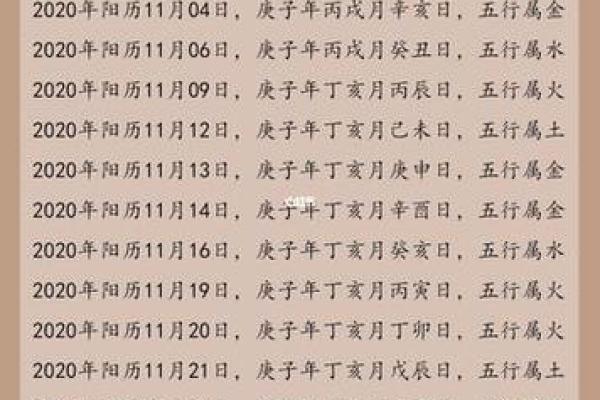 2020年阳历11月04日，庚子年丙戌月辛亥日，五行属金
2020年阳历11月06日，庚子年丙戌月癸丑日，五行属水
2020年阳历11月09日，庚子年丁亥月丙辰日，五行属火
2020年阳历11月12日，庚子年丁亥月己未日，五行属土
2020年阳历11月13日，庚子年丁亥月庚申日，五行属金
2020年阳历11月14日，庚子年丁亥月辛酉日，五行属金
2020年阳历11月16日，庚子年丁亥月癸亥日，五行属水
2020年阳历11月19日，庚子年丁亥月丙寅日，五行属火
2020年阳历11月20日，庚子年丁亥月丁卯日，五行属火
2020年阳历11月21日，庚子年丁亥月戊辰日，五行属土